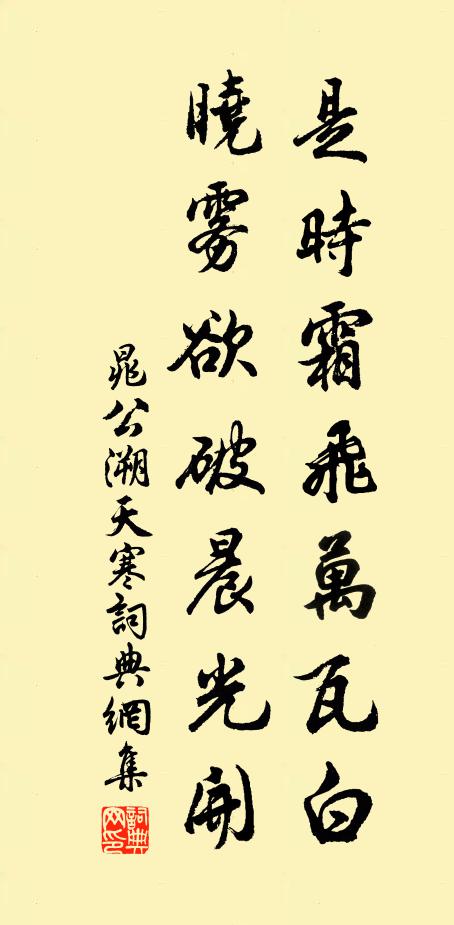 是時霜飛萬瓦白
曉雾欲破晨光開
晁公溯天寒詞典網集
詞典网印